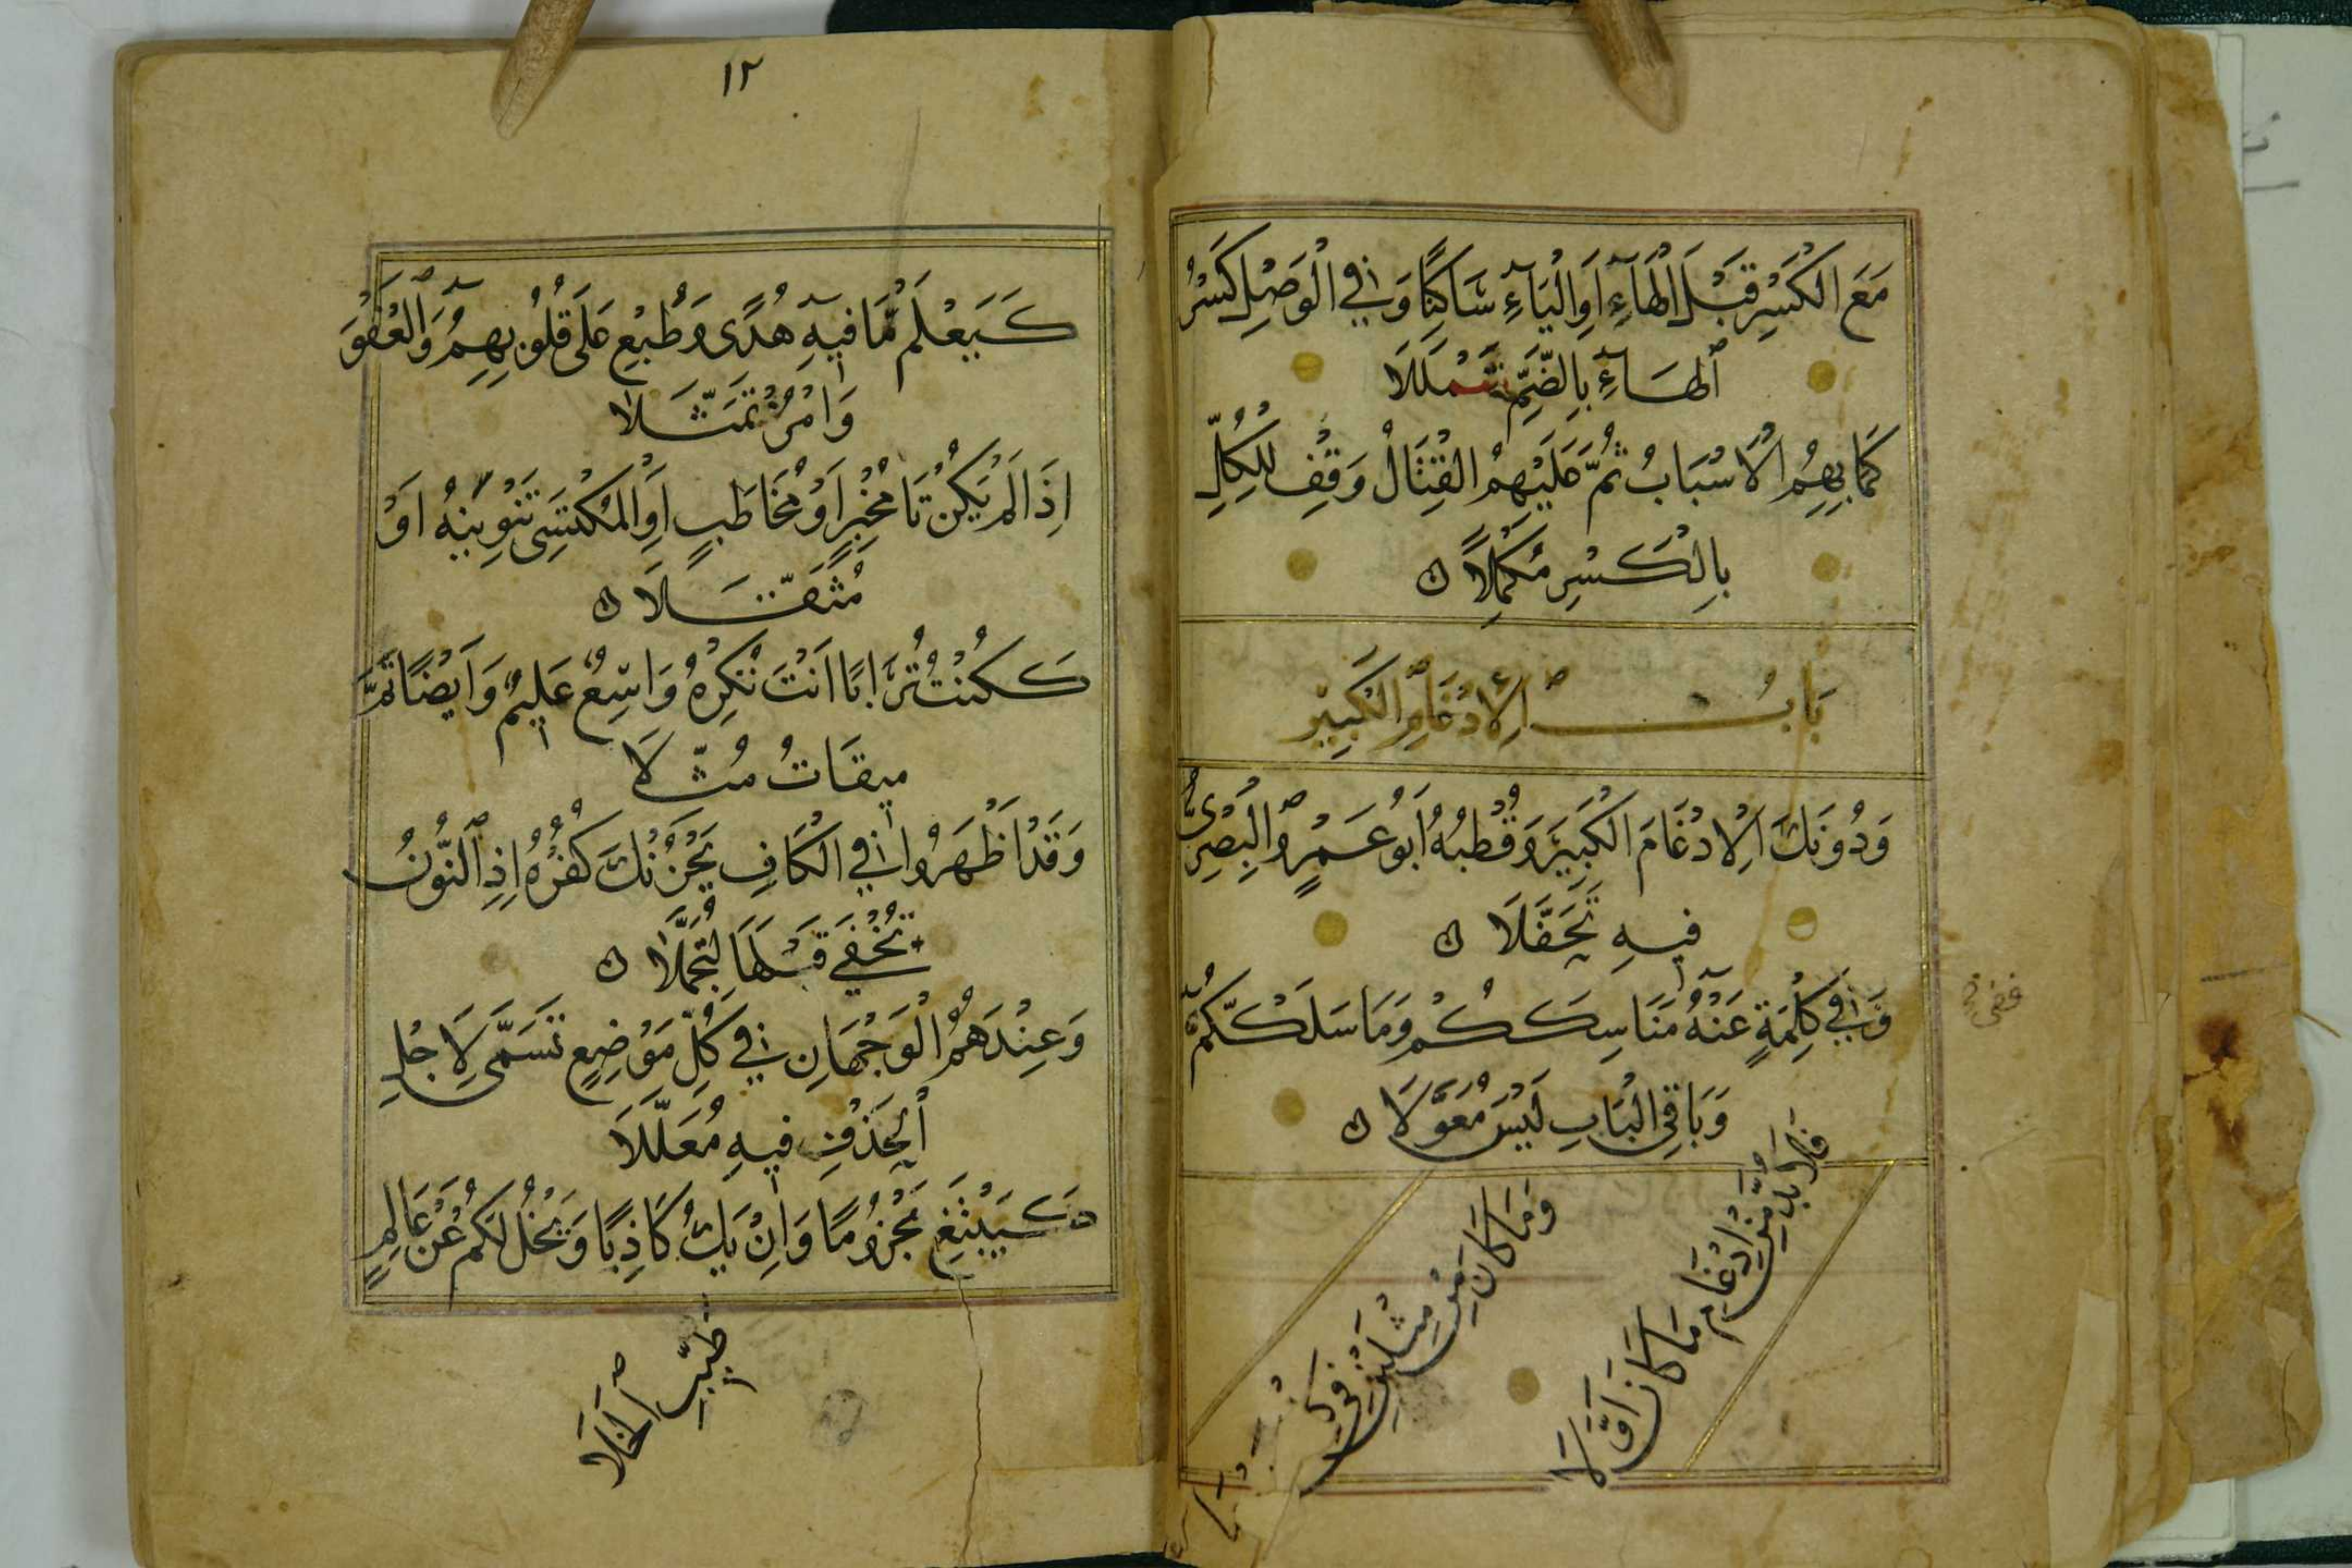 مَعَ الْكَسْرِ قَبْلَ الْهَآءِ اَوِ الْيَآءِ سَاكِنًا وَفِي الْوَصْلِ كَسْرُ
ٱلْهَآءِ بِالضَّمِّ شَمْلَلَا
كَمَا بِهِمُ الْاَسْبَابُ ثُمَّ عَلَيْهِمُ الْقِتَالُ وَقِفْ لِلْكُلِّ
بِالْكَسْرِ مُكْمِلًا ۝
بَابُ ٱلْاِدْغَامِ ٱلْكَبِيْرِ
وَدُونَكَ الْاِدْغَامَ الْكَبِيْرَ وَقُطْبُهُ اَبُو عَمْرٍو ٱلْبَصْرِىُّ
فِيهِ تَحَفَّلَا ۝
وَفِي كِلْمَةٍ عَنْهُ مَنَاسِكَكُمْ وَمَا سَلَكَكُّمْ
وَبَاقِي الْبَابِ لَيْسَ مُعَوَّلَا ۝
وَمَا كَانَ مِنْ مِثْلَيْنِ فِي
فَلَا بُدَّ مِنْ اِدْغَامِ مَا كَانَ اَوَّلَا
١٢
كَيَعْلَمُ مَّا فِيهِ هُدًى وَطُبِعْ عَلَى قُلُوبِهِمُ وَٱلْعَفْوَ
وَامُرْ تَمَثَّلَا
اِذَا لَمْ يَكُنْ تَا مُخْبِرٍ اَوْ مُخَاطَبٍ اَوِ الْمُكْتَسِى تَنْوِيْنُهُ اَوْ
مُثَقَّلَا ۝
كَكُنْتُ تُرَابًا اَنْتَ تُكْرِهُ وَاسِعٌ عَلِيمٌ وَاَيْضًا تَمَّ
مِيقَاتُ مُثِّلَا
وَقَدْ اَظْهَرُوا فِي الْكَافِ يَحْزُنْكَ كُفْرُهُ اِذِ ٱلنُّونُ
تُخْفَي قَبْلَهَا لِتُجَمَّلَا ۝
وَعِنْدَهُمُ الْوَجْهَانِ فِي كُلِّ مَوْضِعٍ تَسَمَّى لِاَجْلِ
ٱلْحَذْفِ فِيهِ مُعَلَّلَا
كَيَبْتَغِ مَجْزُومًا وَاِنْ يَكُ كَاذِبًا وَيَخْلُ لَكُمْ عَنْ عَالِمٍ
طَيِّبِ ٱلْخَلَا